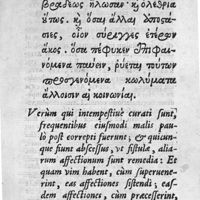 βραδέως ἥλωσαν· κὶ ὀλέθρια
ὕτως. κὶ ὅσαι ἄλλαι ἀποστά-
σιες, οἷον σύριγγες ἑτέρων
ἄκος. ὅσα πέφυκεν ἐπιφαι-
νόμενα παύειν, ῥύεται τούτων
προσγενόμενα κωλύματα
ἄλλοισιν αἱ κοινωνίαι.
Verùm qui intempestiuè curati sunt,
frequentibus eiusmodi malis pau-
lò pòst correpti fuerunt, & quicun-
que fiunt abscessus, vt fistulæ, aliarum
affectionum sunt remedia: Et
quam vim habent, cùm superuene-
rint, eas affectiones sistendi; eas-
dem affectiones, cùm præcesserint,